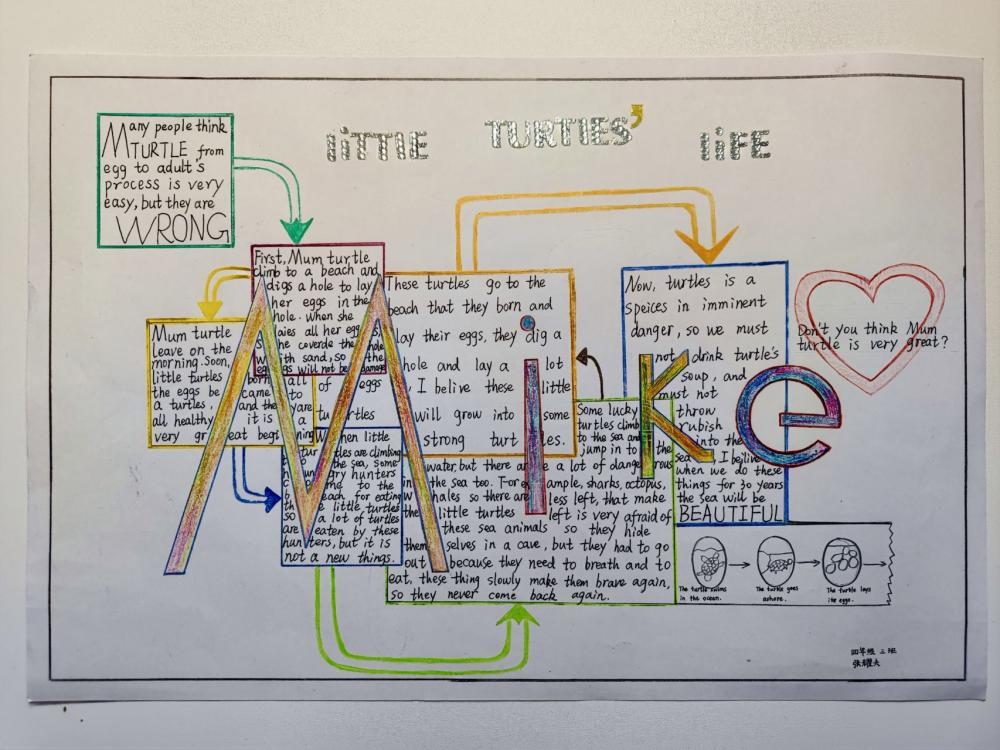 LiTTLE TURTlES' LiFE
Many people think
TURTLE from
egg to adult's
process is very
easy, but they are
WRONG
First, Mum turtle
climb to a beach and
digs a hole to lay
her eggs in the
hole. When she
laies all her eggs,
she coverde the
with sand, so the
eggs will not be damage
Mum turtle
leave on the
morning. Soon,
little turtles born all of
the eggs be came to
a turtles, and they are
all healthy, it is a
very great beginning
When little
turtles are climbing
the sea, some
hungry hunters
come to the
beach for eating
the little turtles
so a lot of turtles
are eaten by these
hunters, but it is
not a new things.
Some lucky
turtles climb
to the sea and
jump in to the
water, but there are a lot of dangerous
in the sea too. For example, sharks, octopus,
whales so there are less left, that make
the little turtles left is very afraid of
these sea animals so they hide
themselves in a cave, but they had to go
out because they need to breath and to
eat, these thing slowly make them brave again,
so they never come back again.
These turtles go to the
beach that they born and
lay their eggs, they dig a
hole and lay a lot
of eggs, I belive these little
turtles will grow into some
strong turtles.
Now, turtles is a
speices in imminent
danger, so we must
not drink turtle's
soup, and
must not
throw
rubish
into the
sea, I beilive
when we do these
things for 30 years
the sea will be
BEAUTIFUL
Don't you think Mum
turtle is very great?
Mike
The turtle swims
in the ocean.
The turtle goes
ashore.
The turtle lays
its eggs.
四年级 三班
张耀夫